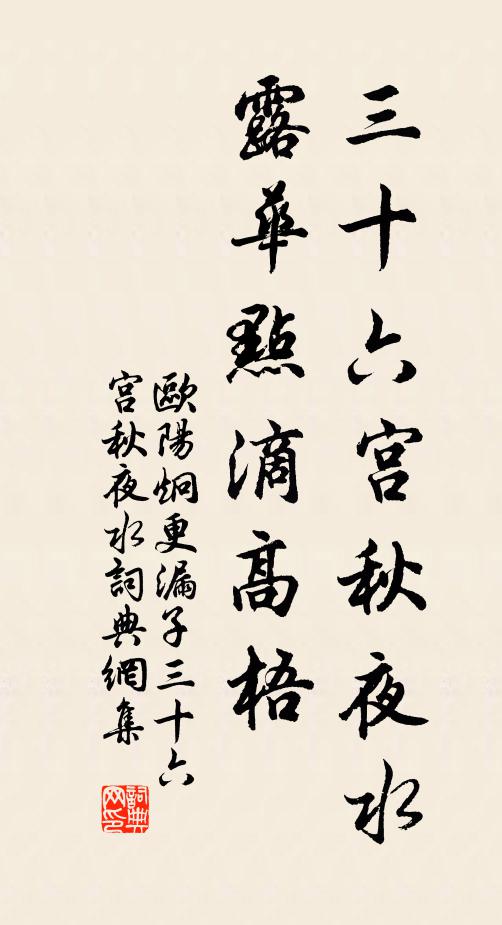 三十六宮秋夜水
露華點滴高梧
歐陽炯更漏子三十六
宮秋夜水詞典網集
詞典
网印